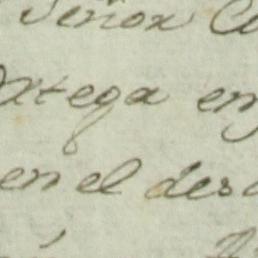 Señor
Ortega en
en el des